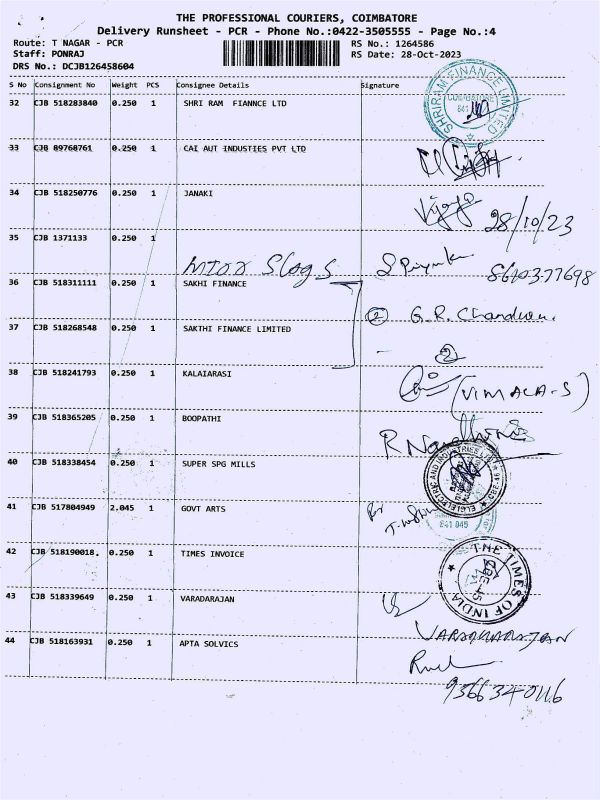 THE PROFESSIONAL COURIERS, COIMBATORE
Delivery Runsheet - PCR - Phone No.:0422-3505555 - Page No.:4
Route: T NAGAR - PCR RS No.: 1264586
Staff: PONRAJ RS Date: 28-Oct-2023
DRS No.: DCJB126458604
S No Consignment No Weight PCS Consignee Details Signature
32 CJB 518283840 0.250 1 SHRI RAM FIANNCE LTD
SHRIRAM FINANCE LIMITED
33 CJB 89768761 0.250 1 CAI AUT INDUSTIES PVT LTD
34 CJB 518250776 0.250 1 JANAKI
28/10/23
35 CJB 1371133 0.250 1
S Priyanka
36 CJB 518311111 0.250 1 SAKHI FINANCE
② G.R. Chandran.
37 CJB 518268548 0.250 1 SAKTHI FINANCE LIMITED
②
38 CJB 518241793 0.250 1 KALAIARASI
(VIMALA-S)
39 CJB 518365205 0.250 1 BOOPATHI
40 CJB 518338454 0.250 1 SUPER SPG MILLS
41 CJB 517804949 2.045 1 GOVT ARTS
641 045
42 CJB 518190018. 0.250 1 TIMES INVOICE
THE TIMES OF INDIA
43 CJB 518339649 0.250 1 VARADARAJAN
VARADHARAJAN
44 CJB 518163931 0.250 1 APTA SOLVICS
9366340116